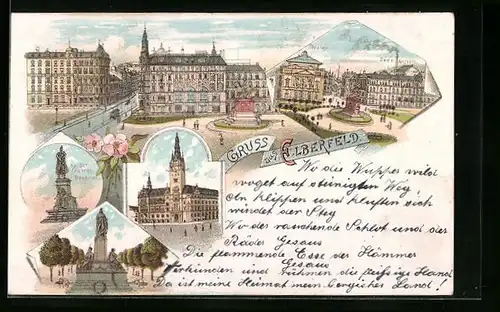 GRUSS aus ELBERFELD.
Wo die Wupper wild
woget auf steinigten Weg,
An Klippen und kluften sich
windet der Steg
Wo der rauchende Schlot und der
Räder Gesaus
Die flammende Esse der Hämmer
Gesaus
Verkünden und rühmen die fleißige Hand
Da ist meine Heimat mein bergisches Land!